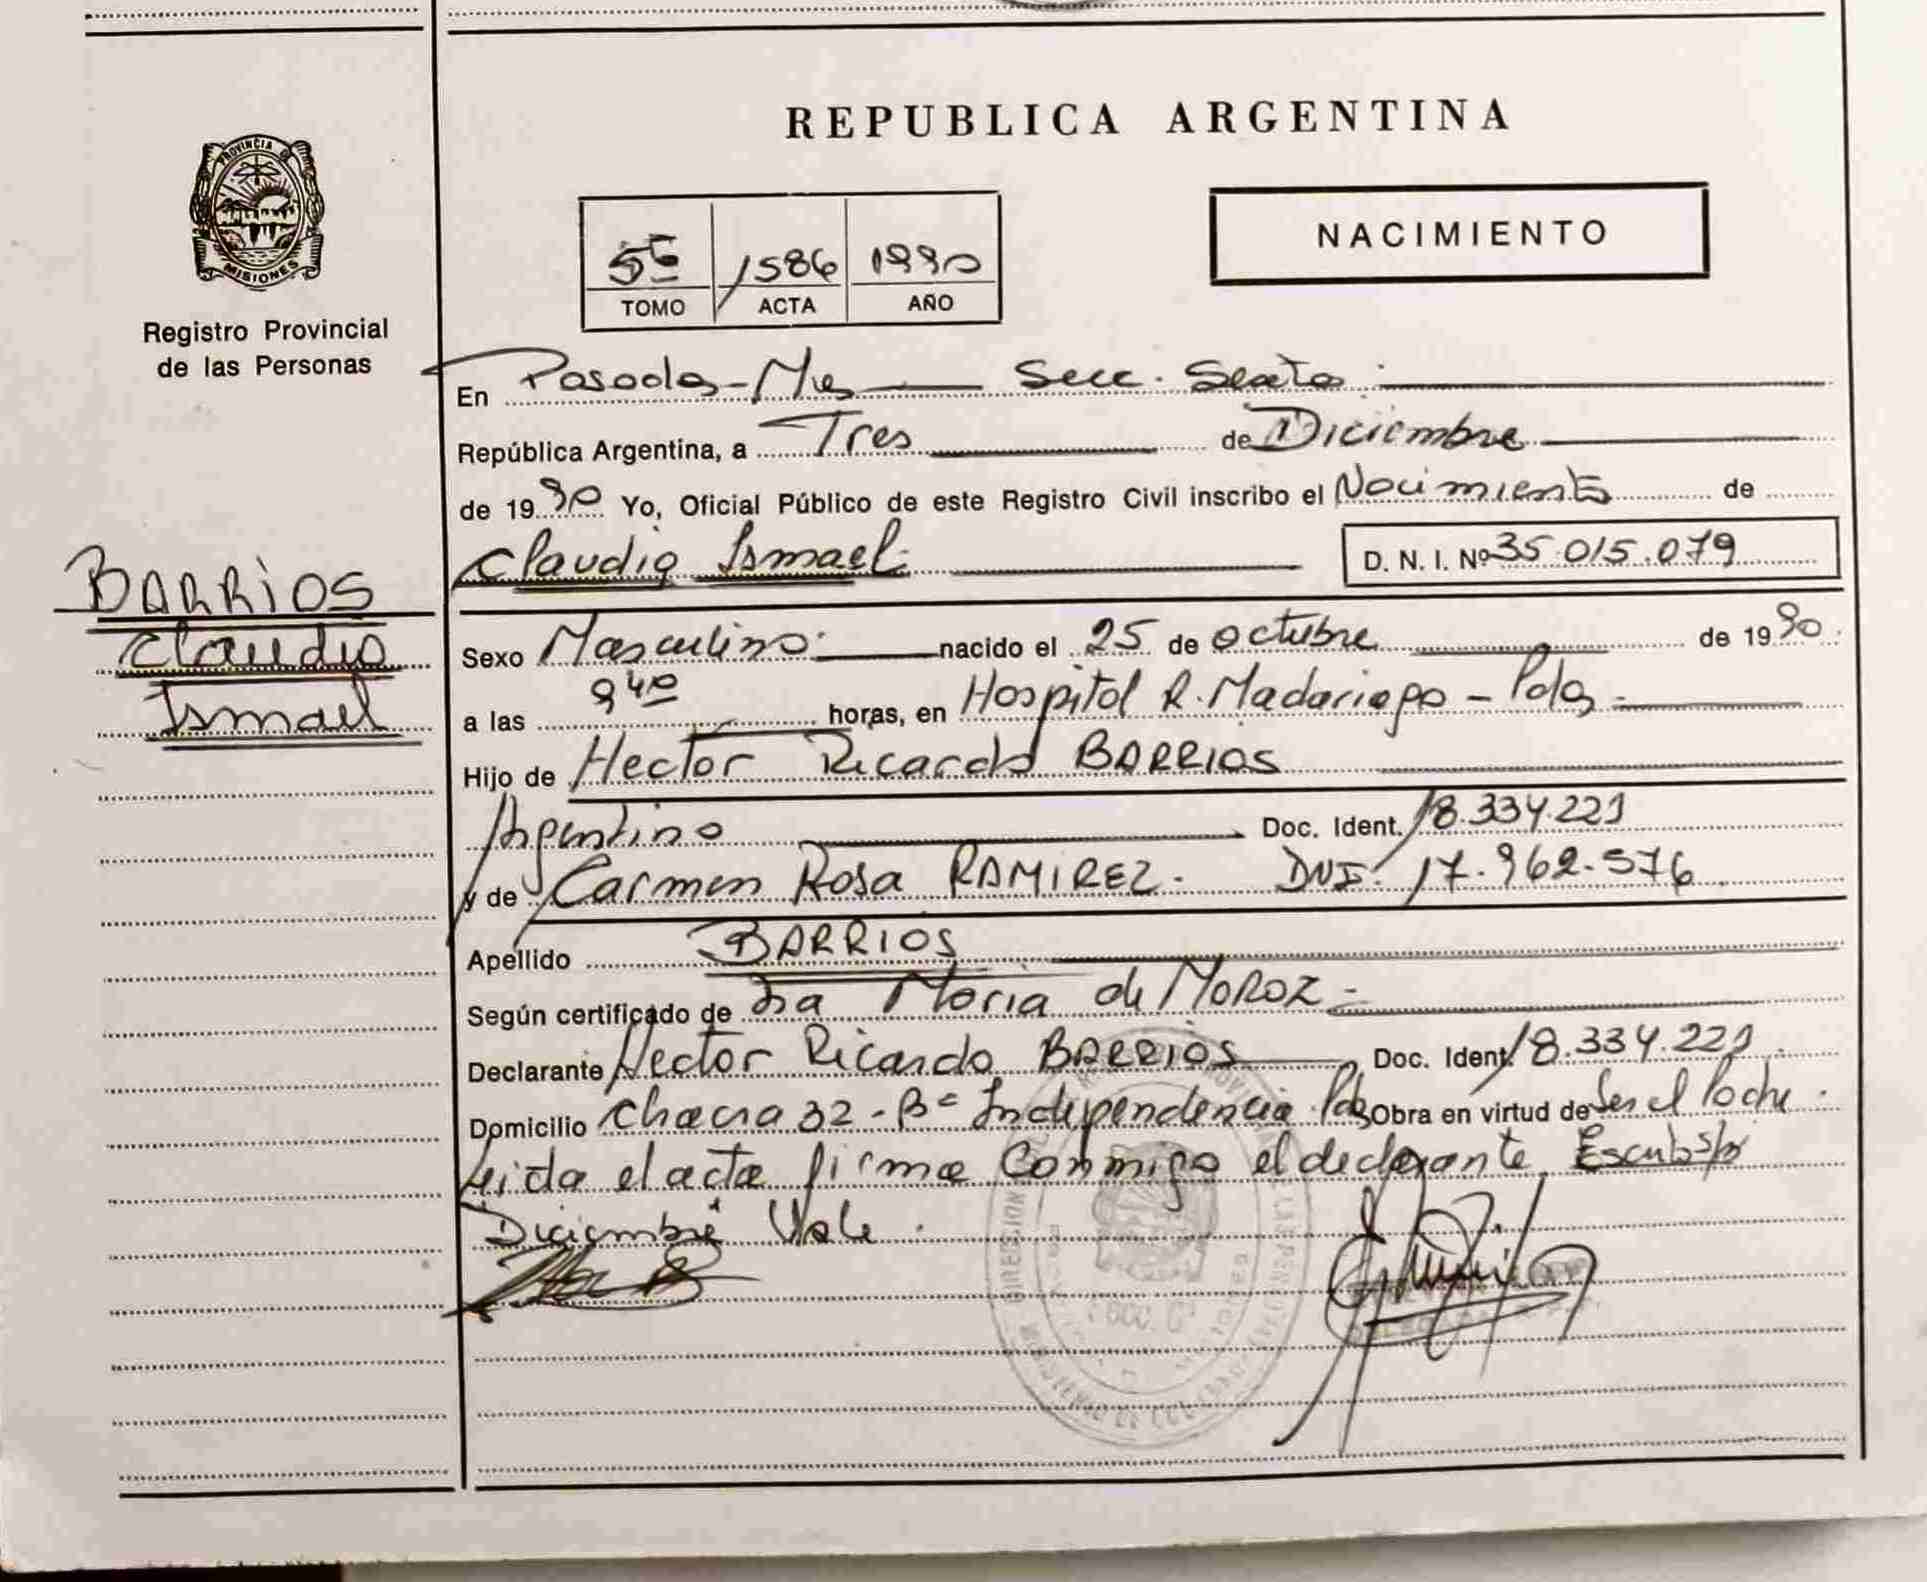 PROVINCIA DE
MISIONES
Registro Provincial
de las Personas
BARRIOS
Claudio
Ismael
REPUBLICA ARGENTINA
NACIMIENTO
1586 1990
TOMO ACTA AÑO
En Posadas - Mnes Secc. Sexta
República Argentina, a Tres de Diciembre
de 1990 Yo, Oficial Público de este Registro Civil inscribo el Nacimiento de
Claudio Ismael D. N. I. Nº 35.015.079
Sexo Masculino. nacido el 25 de octubre de 1990.
a las 9 40 horas, en Hospital R. Madariaga - Pdas
Hijo de Hector Ricardo BARRIOS
Argentino Doc. Ident. 18.334.221
y de Carmen Rosa RAMIREZ. DNI: 17.962.576
Apellido BARRIOS
Según certificado de Dra Maria de MOROZ -
Declarante Hector Ricardo BARRIOS Doc. Ident. 18.334.221.
Domicilio Chacra 32 - Bº Independencia Pdas Obra en virtud de Ser el Padre.
Leida el acta firma Conmigo el declarante. s/r
Diciembre Vale.